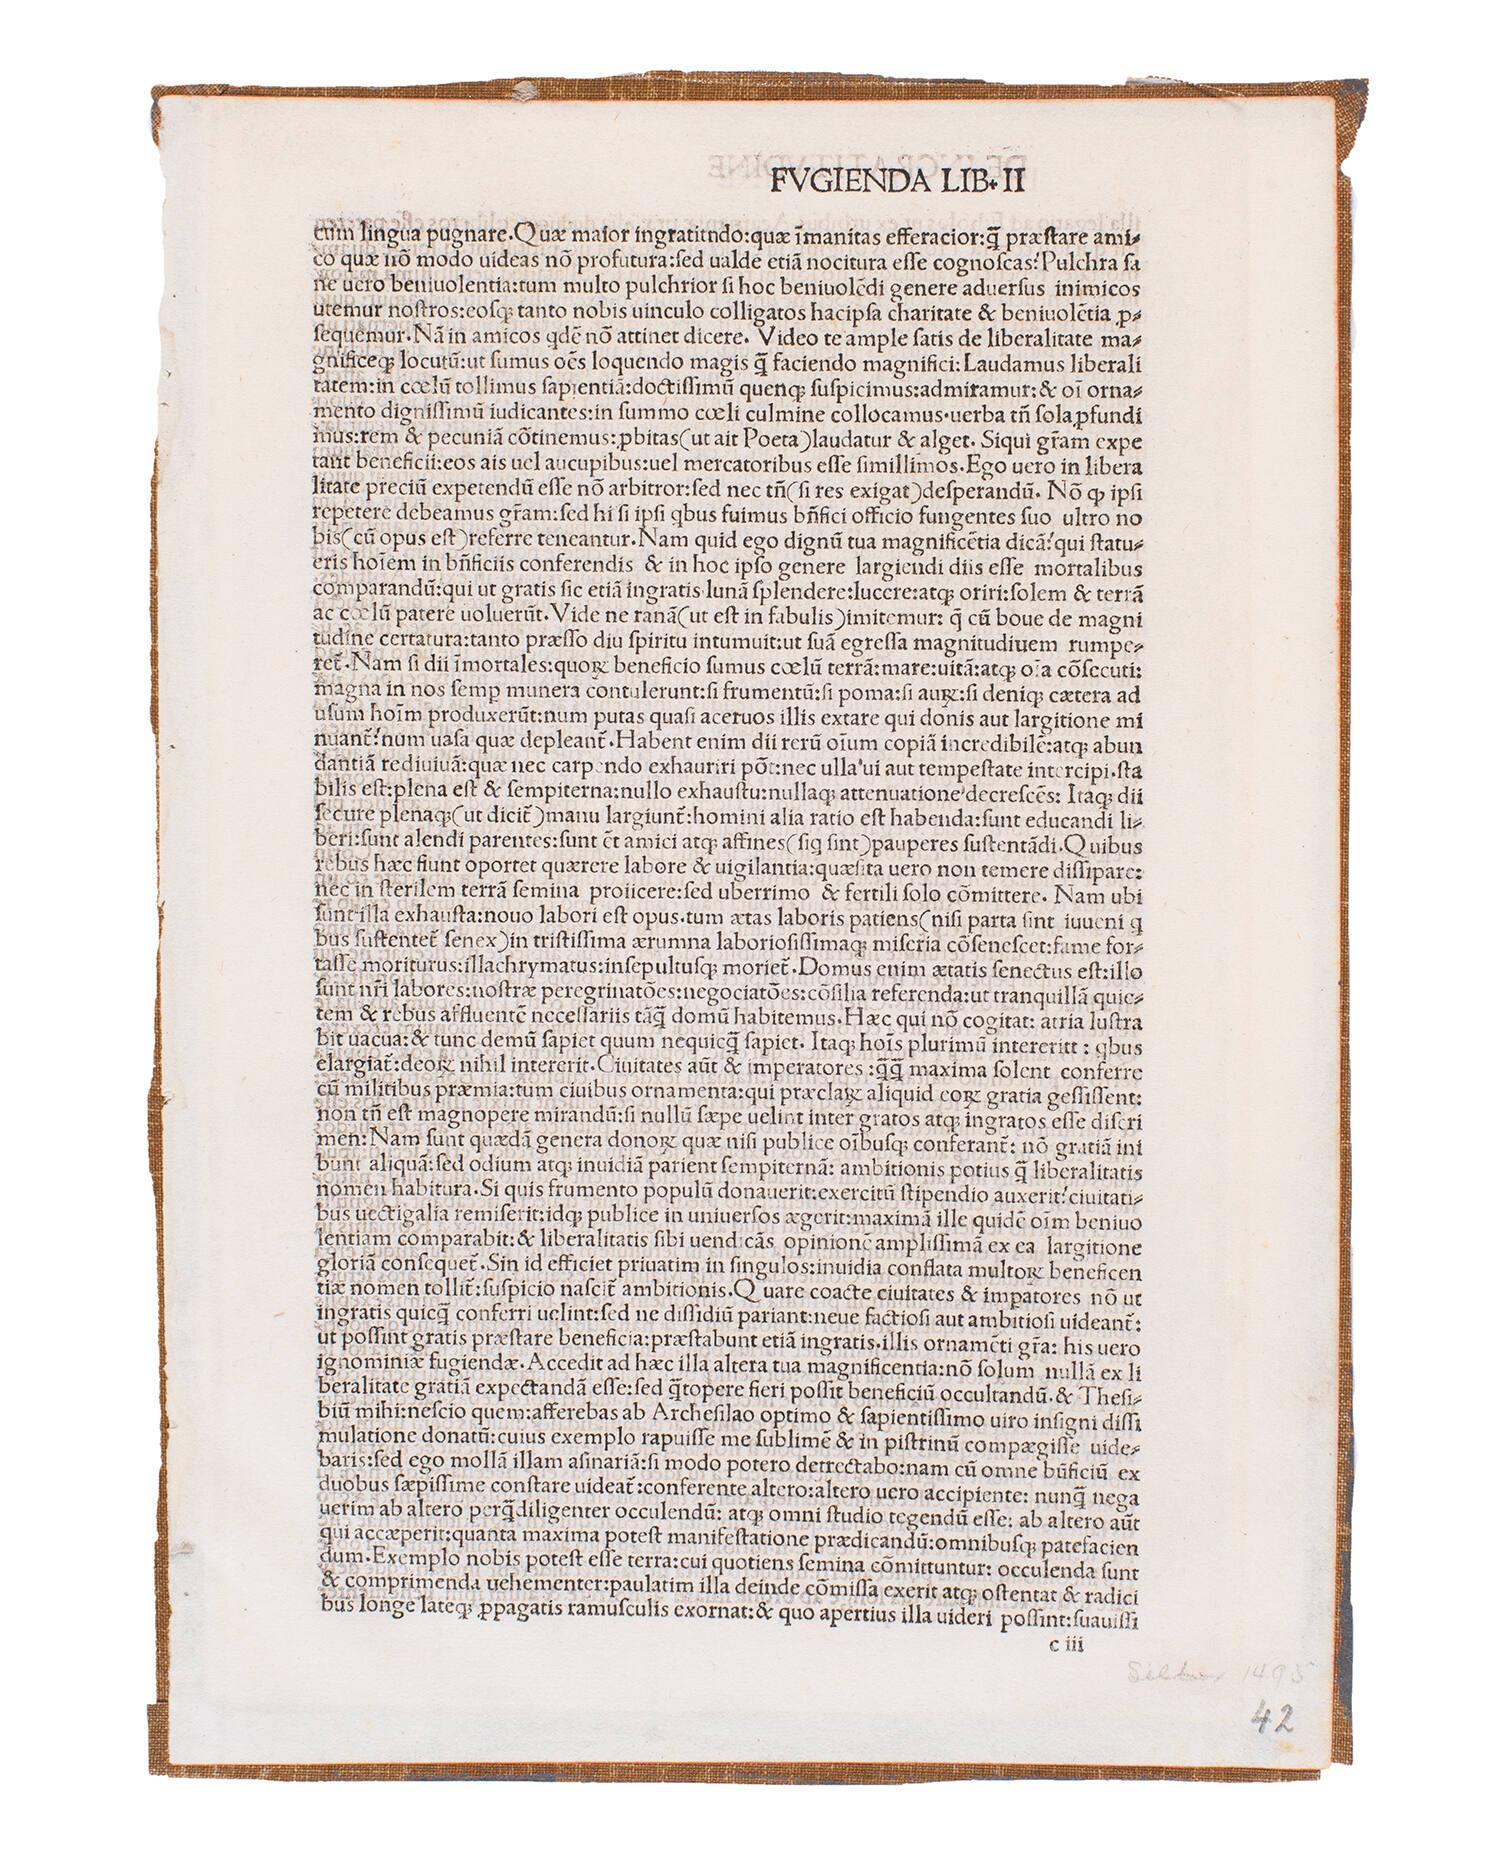 FVGIENDA LIB. II
cum lingua pugnare. Quæ maior ingratitndo: quæ īmanitas efferacior: q̄ præstare ami-
co quæ nō modo uideas nō profutura: sed ualde etiā nocitura esse cognoscas? Pulchra sa
ne uero beniuolentia: tum multo pulchrior si hoc beniuolēdi genere aduersus inimicos
utemur nostros: eosq; tanto nobis uinculo colligatos hac ipsa charitate & beniuolētia ꝓ-
sequemur. Nā in amicos qdē nō attinet dicere. Video te ample satis de liberalitate ma-
gnificeq; locutū: ut sumus oēs loquendo magis q̄ faciendo magnifici: Laudamus liberali
tatem: in cœlū tollimus sapientiā: doctissimū quenq; suspicimus: admiramur: & oī orna-
mento dignissimū iudicantes: in summo cœli culmine collocamus. uerba tn̄ sola ꝓfundi
mus: rem & pecuniā cōtinemus: ꝓbitas (ut ait Poeta) laudatur & alget. Siqui gr̄am expe
tant beneficii: eos ais uel aucupibus: uel mercatoribus esse simillimos. Ego uero in libera
litate preciū expetendū esse nō arbitror: sed nec tn̄ (si res exigat) desperandū. Nō ꝙ ipsi
repetere debeamus gr̄am: sed hi si ipsi qbus fuimus bn̄fici officio fungentes suo ultro no
bis (cū opus est) referre teneantur. Nam quid ego dignū tua magnificētia dicā? qui statu-
eris hoīem in bn̄ficiis conferendis & in hoc ipso genere largiendi diis esse mortalibus
comparandū: qui ut gratis sic etiā ingratis lunā splendere: lucere: atq; oriri: solem & terrā
ac cœlū patere uoluerūt. Vide ne ranā (ut est in fabulis) imitemur: q̄ cū boue de magni
tudine certatura: tanto præsso diu spiritu intumuit: ut suā egressa magnitudinem rumpe-
ret̄. Nam si dii īmortales: quoꝝ beneficio sumus cœlū terrā: mare: uitā: atq; oīa cōsecuti:
magna in nos semp munera contulerunt: si frumentū: si poma: si auꝝ: si deniq; cætera ad
usum hoīm produxerūt: num putas quasi aceruos illis extare qui donis aut largitione mi
nuant̄? num uasa quæ depleant̄. Habent enim dii rerū oīum copiā incredibilē: atq; abun
dantiā rediuiuā: quæ nec carpendo exhauriri pōt: nec ulla ui aut tempestate intercipi. sta
bilis est: plena est & sempiterna: nullo exhaustu: nullaq; attenuatione decrescēs: Itaq; dii
secure plenaq; (ut dicit̄) manu largiunt̄: homini alia ratio est habenda: sunt educandi li-
beri: sunt alendi parentes: sunt et̄ amici atq; affines (siq sint) pauperes sustentādi. Quibus
rebus hæc fiunt oportet quærere labore & uigilantia: quæsita uero non temere dissipare:
nec in sterilem terrā semina proiicere: sed uberrimo & fertili solo cōmittere. Nam ubi
sunt illa exhausta: nouo labori est opus. tum ætas laboris patiens (nisi parta sint iuueni q
bus sustentet̄ senex) in tristissima ærumna laboriosissimaq; miseria cōsenescet: fame for-
tasse moriturus: illachrymatus: insepultusq; moriet̄. Domus enim ætatis senectus est: illo
sunt nr̄i labores: nostræ peregrinatōes: negociatōes: cōsilia referenda: ut tranquillā quie-
tem & rebus affluentē necessariis tāq̄ domū habitemus. Hæc qui nō cogitat: atria lustra
bit uacua: & tunc demū sapiet quum nequicq̄ sapiet. Itaq; hoīs plurimū intereritt: qbus
elargiat̄: deoꝝ nihil intererit. Ciuitates aūt & imperatores: q̄q̄ maxima solent conferre
cū militibus præmia: tum ciuibus ornamenta: qui præclaꝝ aliquid eoꝝ gratia gessissent:
non tn̄ est magnopere mirandū: si nullū sæpe uelint inter gratos atq; ingratos esse discri
men: Nam sunt quædā genera donoꝝ quæ nisi publice oībusq; conferant̄: nō gratiā ini
bunt aliquā: sed odium atq; inuidiā parient sempiternā: ambitionis potius q̄ liberalitatis
nomen habitura. Si quis frumento populū donauerit: exercitū stipendio auxerit? ciuitati-
bus uectigalia remiserit: idq; publice in uniuersos ægerit: maximā ille quidē oīm beniuo
lentiam comparabit: & liberalitatis sibi uendicās opinionē amplissimā ex ea largitione
gloriā consequet̄. Sin id efficiet priuatim in singulos: inuidia conflata multoꝝ beneficen
tiæ nomen tollit̄: suspicio nascit̄ ambitionis. Quare coacte ciuitates & impatores nō ut
ingratis quicq̄ conferri uelint: sed ne dissidiū pariant: neue factiosi aut ambitiosi uideant̄:
ut possint gratis præstare beneficia: præstabunt etiā ingratis. illis ornamēti gr̄a: his uero
ignominiæ fugiendæ. Accedit ad hæc illa altera tua magnificentia: nō solum nullā ex li
beralitate gratiā expectandā esse: sed q̄topere fieri possit beneficiū occultandū. & Thesi-
biū mihi: nescio quem: afferebas ab Archesilao optimo & sapientissimo uiro insigni dissi
mulatione donatū: cuius exemplo rapuisse me sublimē & in pistrinū compægisse uide-
baris: sed ego mollā illam asinariā: si modo potero detrectabo: nam cū omne bn̄ficiū ex
duobus sæpissime constare uideat̄: conferente altero: altero uero accipiente: nunq̄ nega
uerim ab altero perq̄diligenter occulendū: atq; omni studio tegendū esse: ab altero aūt
qui accæperit: quanta maxima potest manifestatione prædicandū: omnibusq; patefacien
dum. Exemplo nobis potest esse terra: cui quotiens semina cōmittuntur: occulenda sunt
& comprimenda uehementer: paulatim illa deinde cōmissa exerit atq; ostentat & radici
bus longe lateq; ꝓpagatis ramusculis exornat: & quo apertius illa uideri possint: suauissi
c iii
1495
42